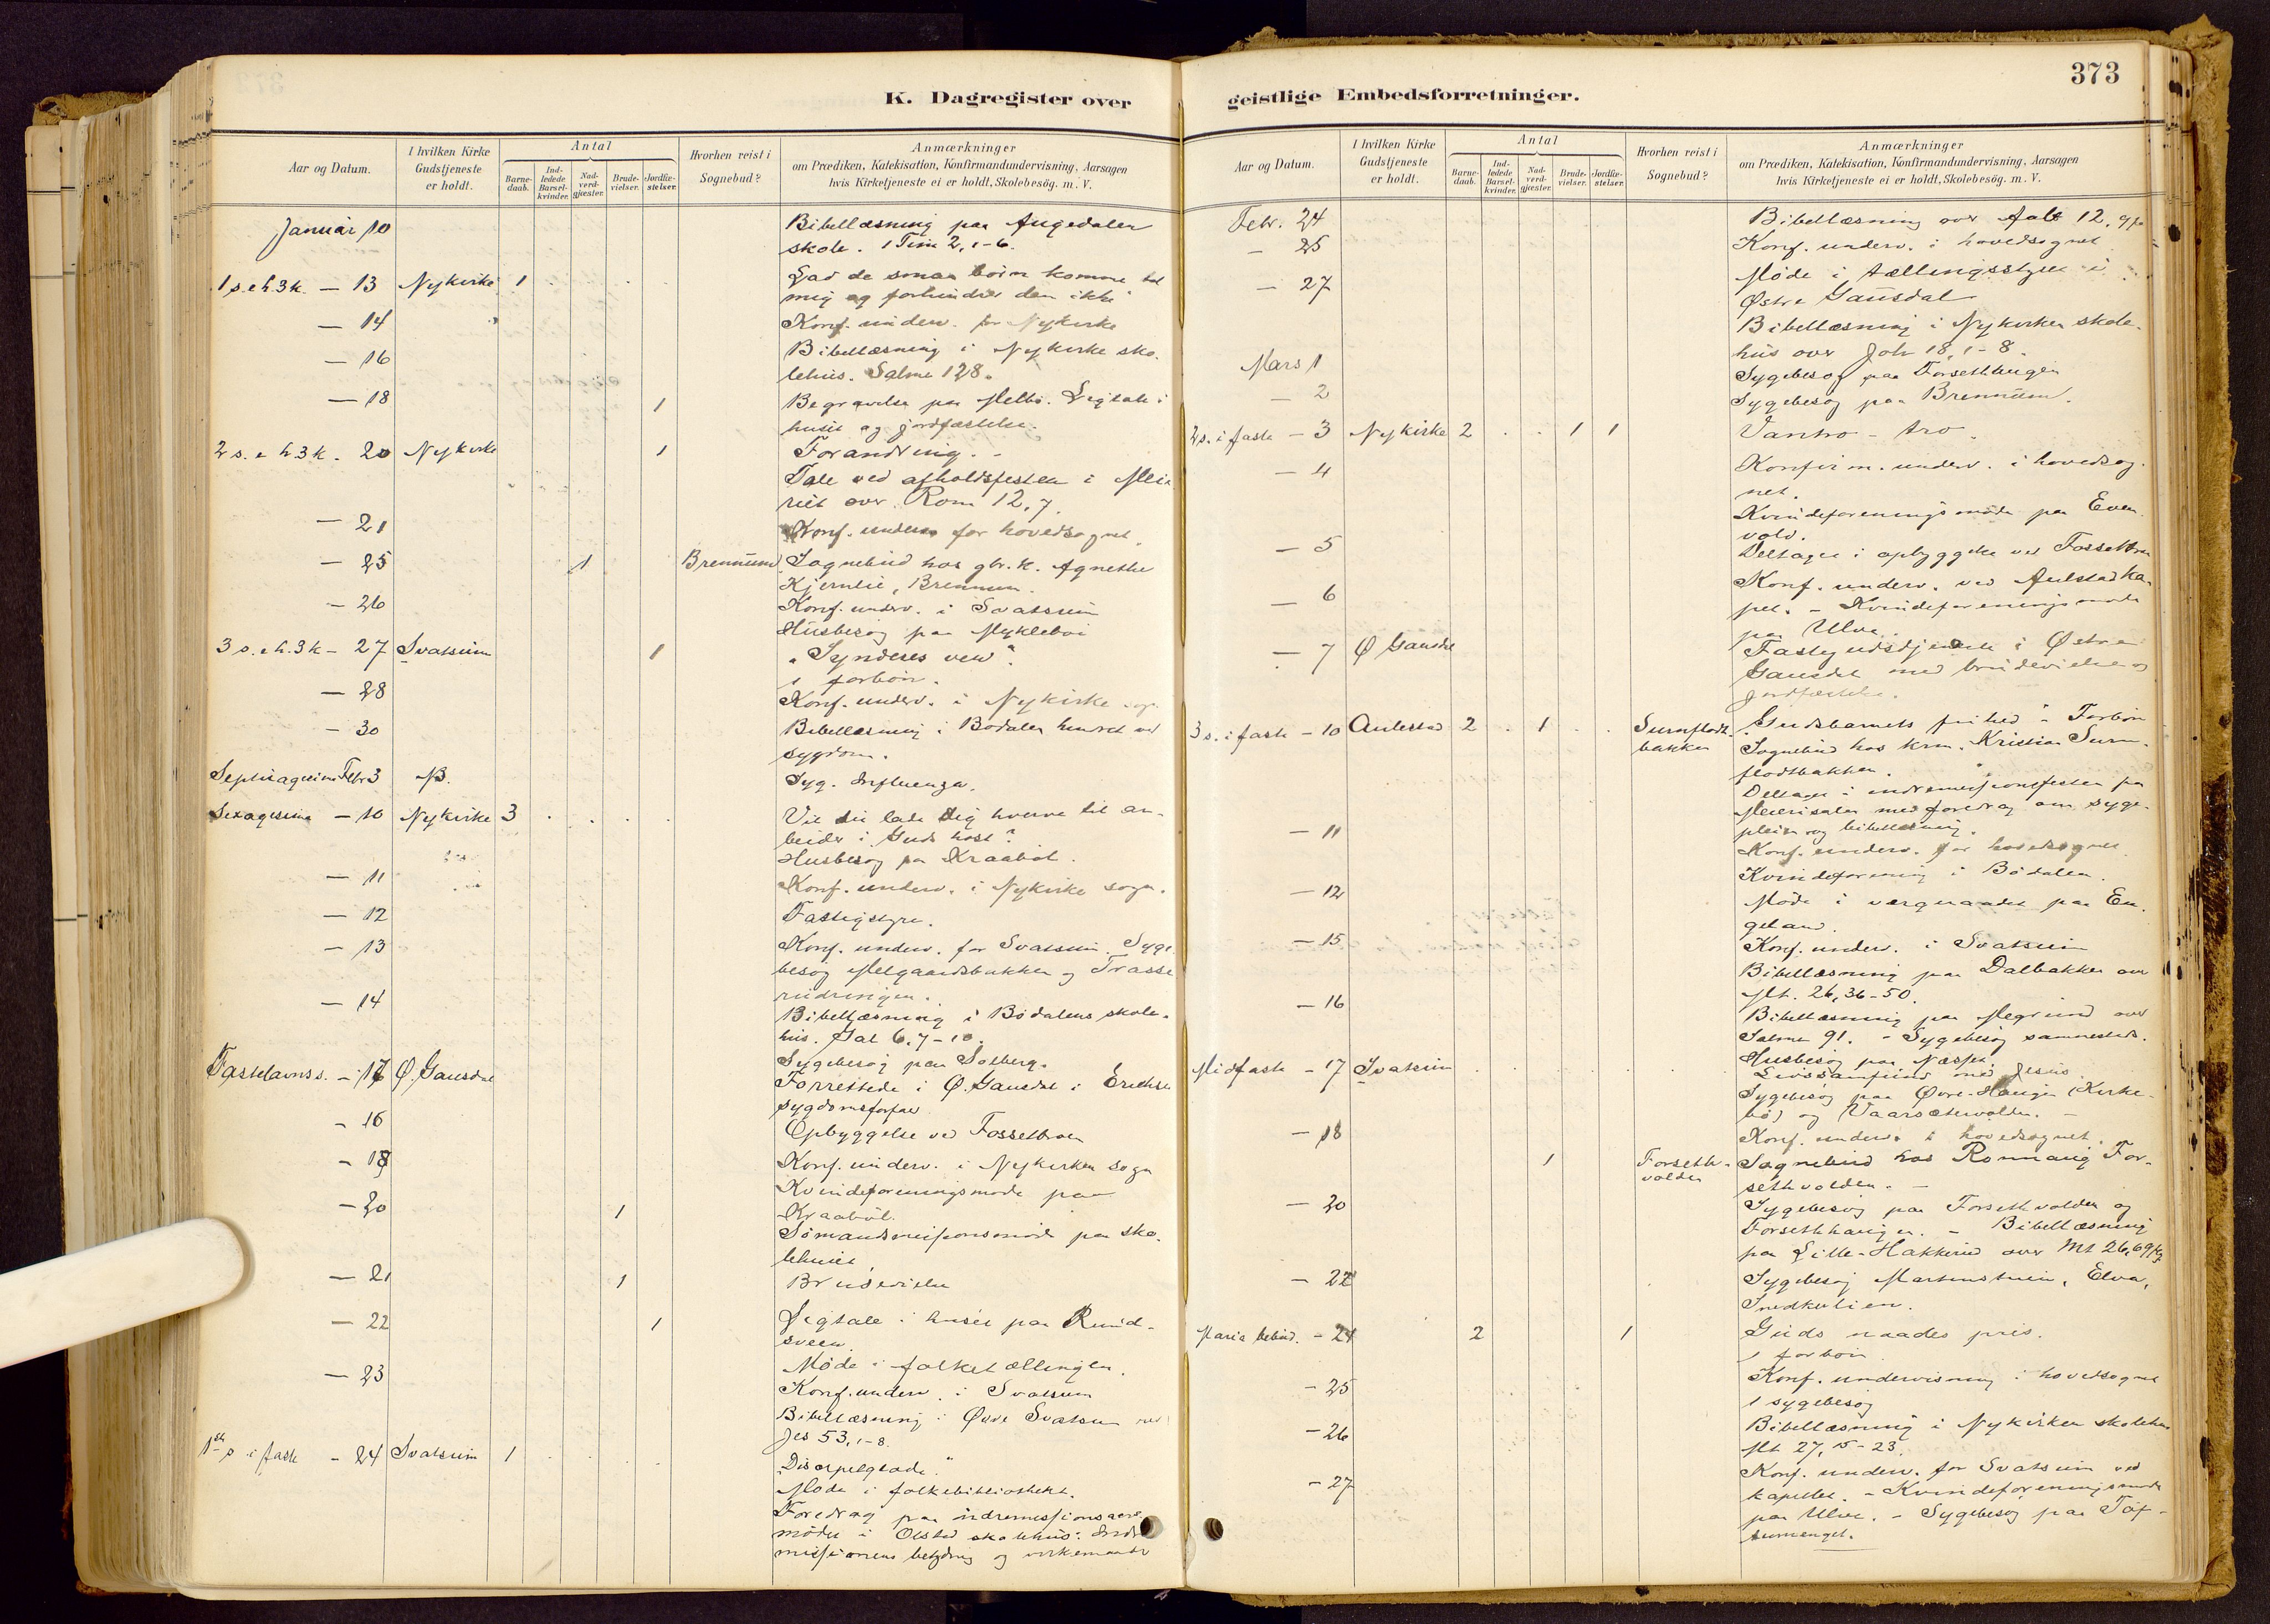 K. Dagregister over
Aar og Datum.
I hvilken Kirke
Gudstjeneste
er holdt.
Antal
Barne-
daab.
Ind-
ledede
Barsel-
kvinder.
Nad-
verd-
gjæster.
Brude-
vielser.
Jordfæ-
stelser.
Hvorhen reist i
Sognebud?
Anmærkninger
om Prædiken, Katekisation, Konfirmandundervisning, Aarsagen
hvis Kirketjeneste ei er holdt, Skolebesøg. m. V.
Januar 10 Bibellæsning paa Augedalen
skole. 1 Tim 2, 1-6.
1 s. e h. 3 k. — 13 Nykirke 1 Lad de smaa börn komme til
mig og forhindrer dem ikke
— 14 Konf. underv. for Nykirke
— 16 Bibellæsning i Nykirke sko-
lehus. Salme 128.
— 18 1 Begravelse paa Melbö. Ligtale i
huset og jordfæstelse.
2 s. e h. 3 k. 20 Nykirke 1 Forandring. -
Tale ved afholdsfesten i Mei-
riet over Rom 12, 7.
— 21 Konf. underv. for hovedsognet.
— 25 1 Brennum Sognebud hos gbr. k. Agnethe
Kjernlie, Brennum.
— 26 Konf. underv. i Svatsum
Husbesög paa Myklebö
3 s. e h. 3 k — 27 Svatsum 1 "Synderes ven".
1 forbön.
— 28 Konf. underv. i Nykirke sogn
— 30 Bibellæsning i Bödalen hindret ved
sygdom.
Septuagesima Febr 3 Syg. Influenza.
Sexagesima — 10 Nykirke 3 Vil du lade dig hverve til ar-
beider i Guds höst?
Husbesög paa Kraaböl.
— 11 Konf. underv. i Nykirke sogn.
— 12 Fattigstyre.
— 13 Konf. underv. for Svatsum. Syge
besög Melgaardsbakken og Trasse
rudringen.
— 14 Bibellæsning i Bödalens skole-
hus. Gal 6, 7-10.
Sygebesög paa Solberg.
Fastelavns s. — 17 Ö. Gausdal Forrettede i Ö. Gausdal i
sygdomsforfal
— 16 Opbyggelse ved Fossebroen
— 18 Konf. underv. i Nykirken sogn
Kvindeforeningsmöde paa
Kraaböl.
— 20 1 Sömandsmissionsmöde paa sko-
lehuset
— 21 1 Brudevielse
— 22 1 Ligtale i huset paa Rund-
sveen.
— 23 Möde i folketællingen.
Konf. underv. i Svatsum
Bibellæsning i Övre Svatsum ved
Jes 53, 1-8.
1ste s. i faste — 24 Svatsum 1 "Discipelglæde."
Möde i folkebibliotheket.
Foredrag paa indremissionsaars
mödet i Olstad skolehus: Indre
missionens betydning og virkemaade
geistlige Embedsforretninger.
373
Aar og Datum.
I hvilken Kirke
Gudstjeneste
er holdt.
Antal
Barne-
daab.
Ind-
ledede
Barsel-
kvinder.
Nad-
verd-
gjæster.
Brude-
vielser.
Jordfæ-
stelser.
Hvorhen reist i
Sognebud?
Anmærkninger
om Prædiken, Katekisation, Konfirmandundervisning, Aarsagen
hvis Kirketjeneste ei er holdt, Skolebesøg. m. V.
Febr. 24 Bibellæsning over 12, 9
— 25 Konf. underv. i hovedsognet
— 27 Möde i tællingsstyret i
Østre Gausdal
Bibellæsning i Nykirken skole-
hus over Joh 18, 1-8.
Mars 1 Sygebesög paa Forsethhaugen
— 2 Sygebesög paa Brennum.
2 s. i faste — 3 Nykirke 2 1 1 Vantro - tro.
— 4 Konfirm. underv. i hovedsog-
net.
Kvindeforeningsmöde paa Even
vold.
— 5 Deltager i opbyggelse ved Fossebroen
— 6 Konf. underv. ved Aulstad ka-
pel. - Kvindeforeningsmöde
paa Ulva.
— 7 Ö Gausdal Fastegudstjeneste i Östre
Gausdal med brudevielse og
jordfæstelse.
3 s. i faste — 10 Aulestad 2 1 Surnflodt-
bakken "Gudsbarnets frihed" - Forbön
Sognebud hos krm. Kristian Surn-
flodtbakken.
Deltager i indremissionsfesten paa
Meierisalen med foredrag om syge-
pleien og bibellæsning.
— 11 Konf. underv. for hovedsognet
Kvindeforening i Bödalen.
— 12 Möde i værgeraadet paa En-
geland.
— 15 Konf. underv. i Svatsum
Bibellæsning paa Dalbakken over
Mt. 26, 36-50.
— 16 Bibellæsning paa Megrund over
Salme 91. - Sygebesög sammesteds.
Husbesög paa Næsset.
Midfaste — 17 Svatsum Livssamfund med Jesus.
Sygebesög paa Övre-Haugen (Kirke-
bö) og Vaarsætervolden. -
— 18 Konf. underv. i hovedsognet.
1 Forseth-
volden Sognebud hos Rönnaug For-
sethvolden. -
— 20 Sygebesög paa Forsethvolden og
Forsethhaugen. - Bibellæsning
paa Lille-Hakkerud over Mt 26, 69
— 22 Sygebesög Martinstuen, Elva,
Snedkerlien.
Maria bebud. — 24 2 1 Guds naades pris.
1 forbön
— 25 Konf. undervisning i hovedsognet
1 sygebesög
— 26 Bibellæsning i Nykirken skolehus
Mt 27, 15-23.
— 27 Konf. underv. for Svatsum ved
kapellet. - Kvindeforeningsmöde
paa Ulva. - Sygebesög paa